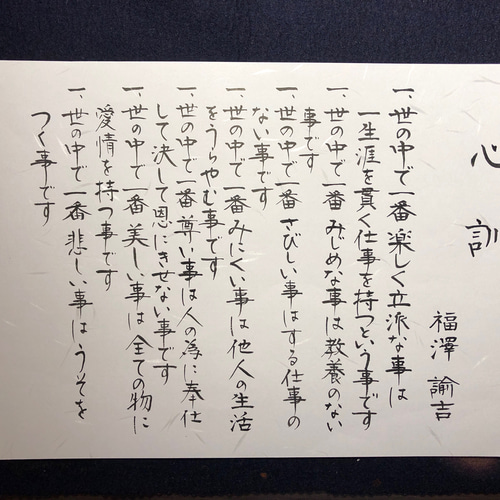 心訓
福澤諭吉
一、世の中で一番楽しく立派な事は
一生涯を貫く仕事を持つという事です
一、世の中で一番みじめな事は教養のない
事です
一、世の中で一番さびしい事はする仕事の
ない事です
一、世の中で一番みにくい事は他人の生活
をうらやむ事です
一、世の中で一番尊い事は人の為に奉仕
して決して恩にきせない事です
一、世の中で一番美しい事は全ての物に
愛情を持つ事です
一、世の中で一番悲しい事はうそを
つく事です